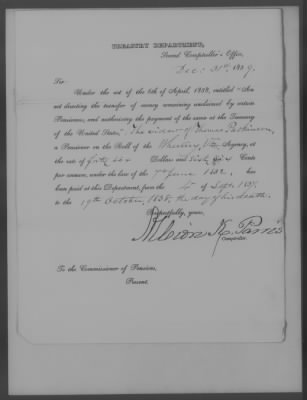 TREASURY DEPARTMENT,
Second Comptroller's Office,
Dec: 31st, 1839.
Sir:
Under the act of the 6th of April, 1838, entitled "An
act directing the transfer of money remaining unclaimed by certain
Pensioners, and authorizing the payment of the same at the Treasury
of the United States," The widow of Thomas Parkinson,
a Pensioner on the Roll of the Wheeling, Va Agency, at
the rate of forty six Dollars and sixty six Cents
per annum, under the law of the 7th June 1832, has
been paid at this Department, from the 4th of Sept. 1838,
to the 19th October, 1838, the day of his death.
Respectfully, yours,
Albion K. Parris
Comptroller.
To the Commissioner of Pensions,
Present.